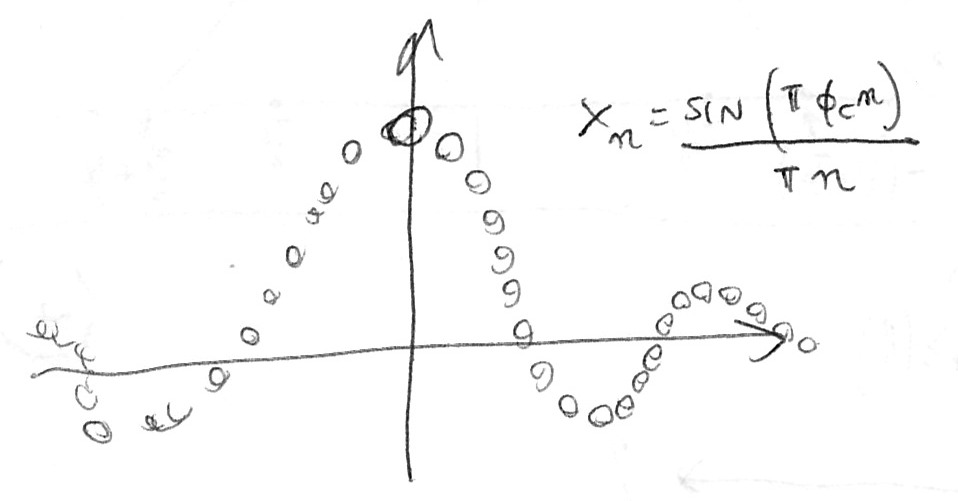 Xn = SIN (π ϕc n)
π n